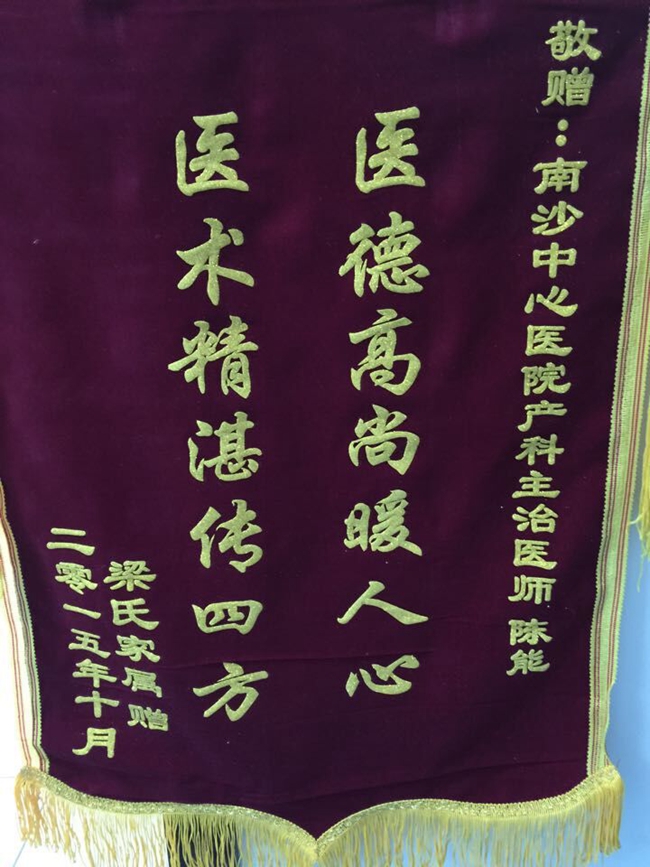 敬赠：南沙中心医院产科主治医师 陈能
医德高尚暖人心
医术精湛传四方
梁氏家属赠
二零一五年十月